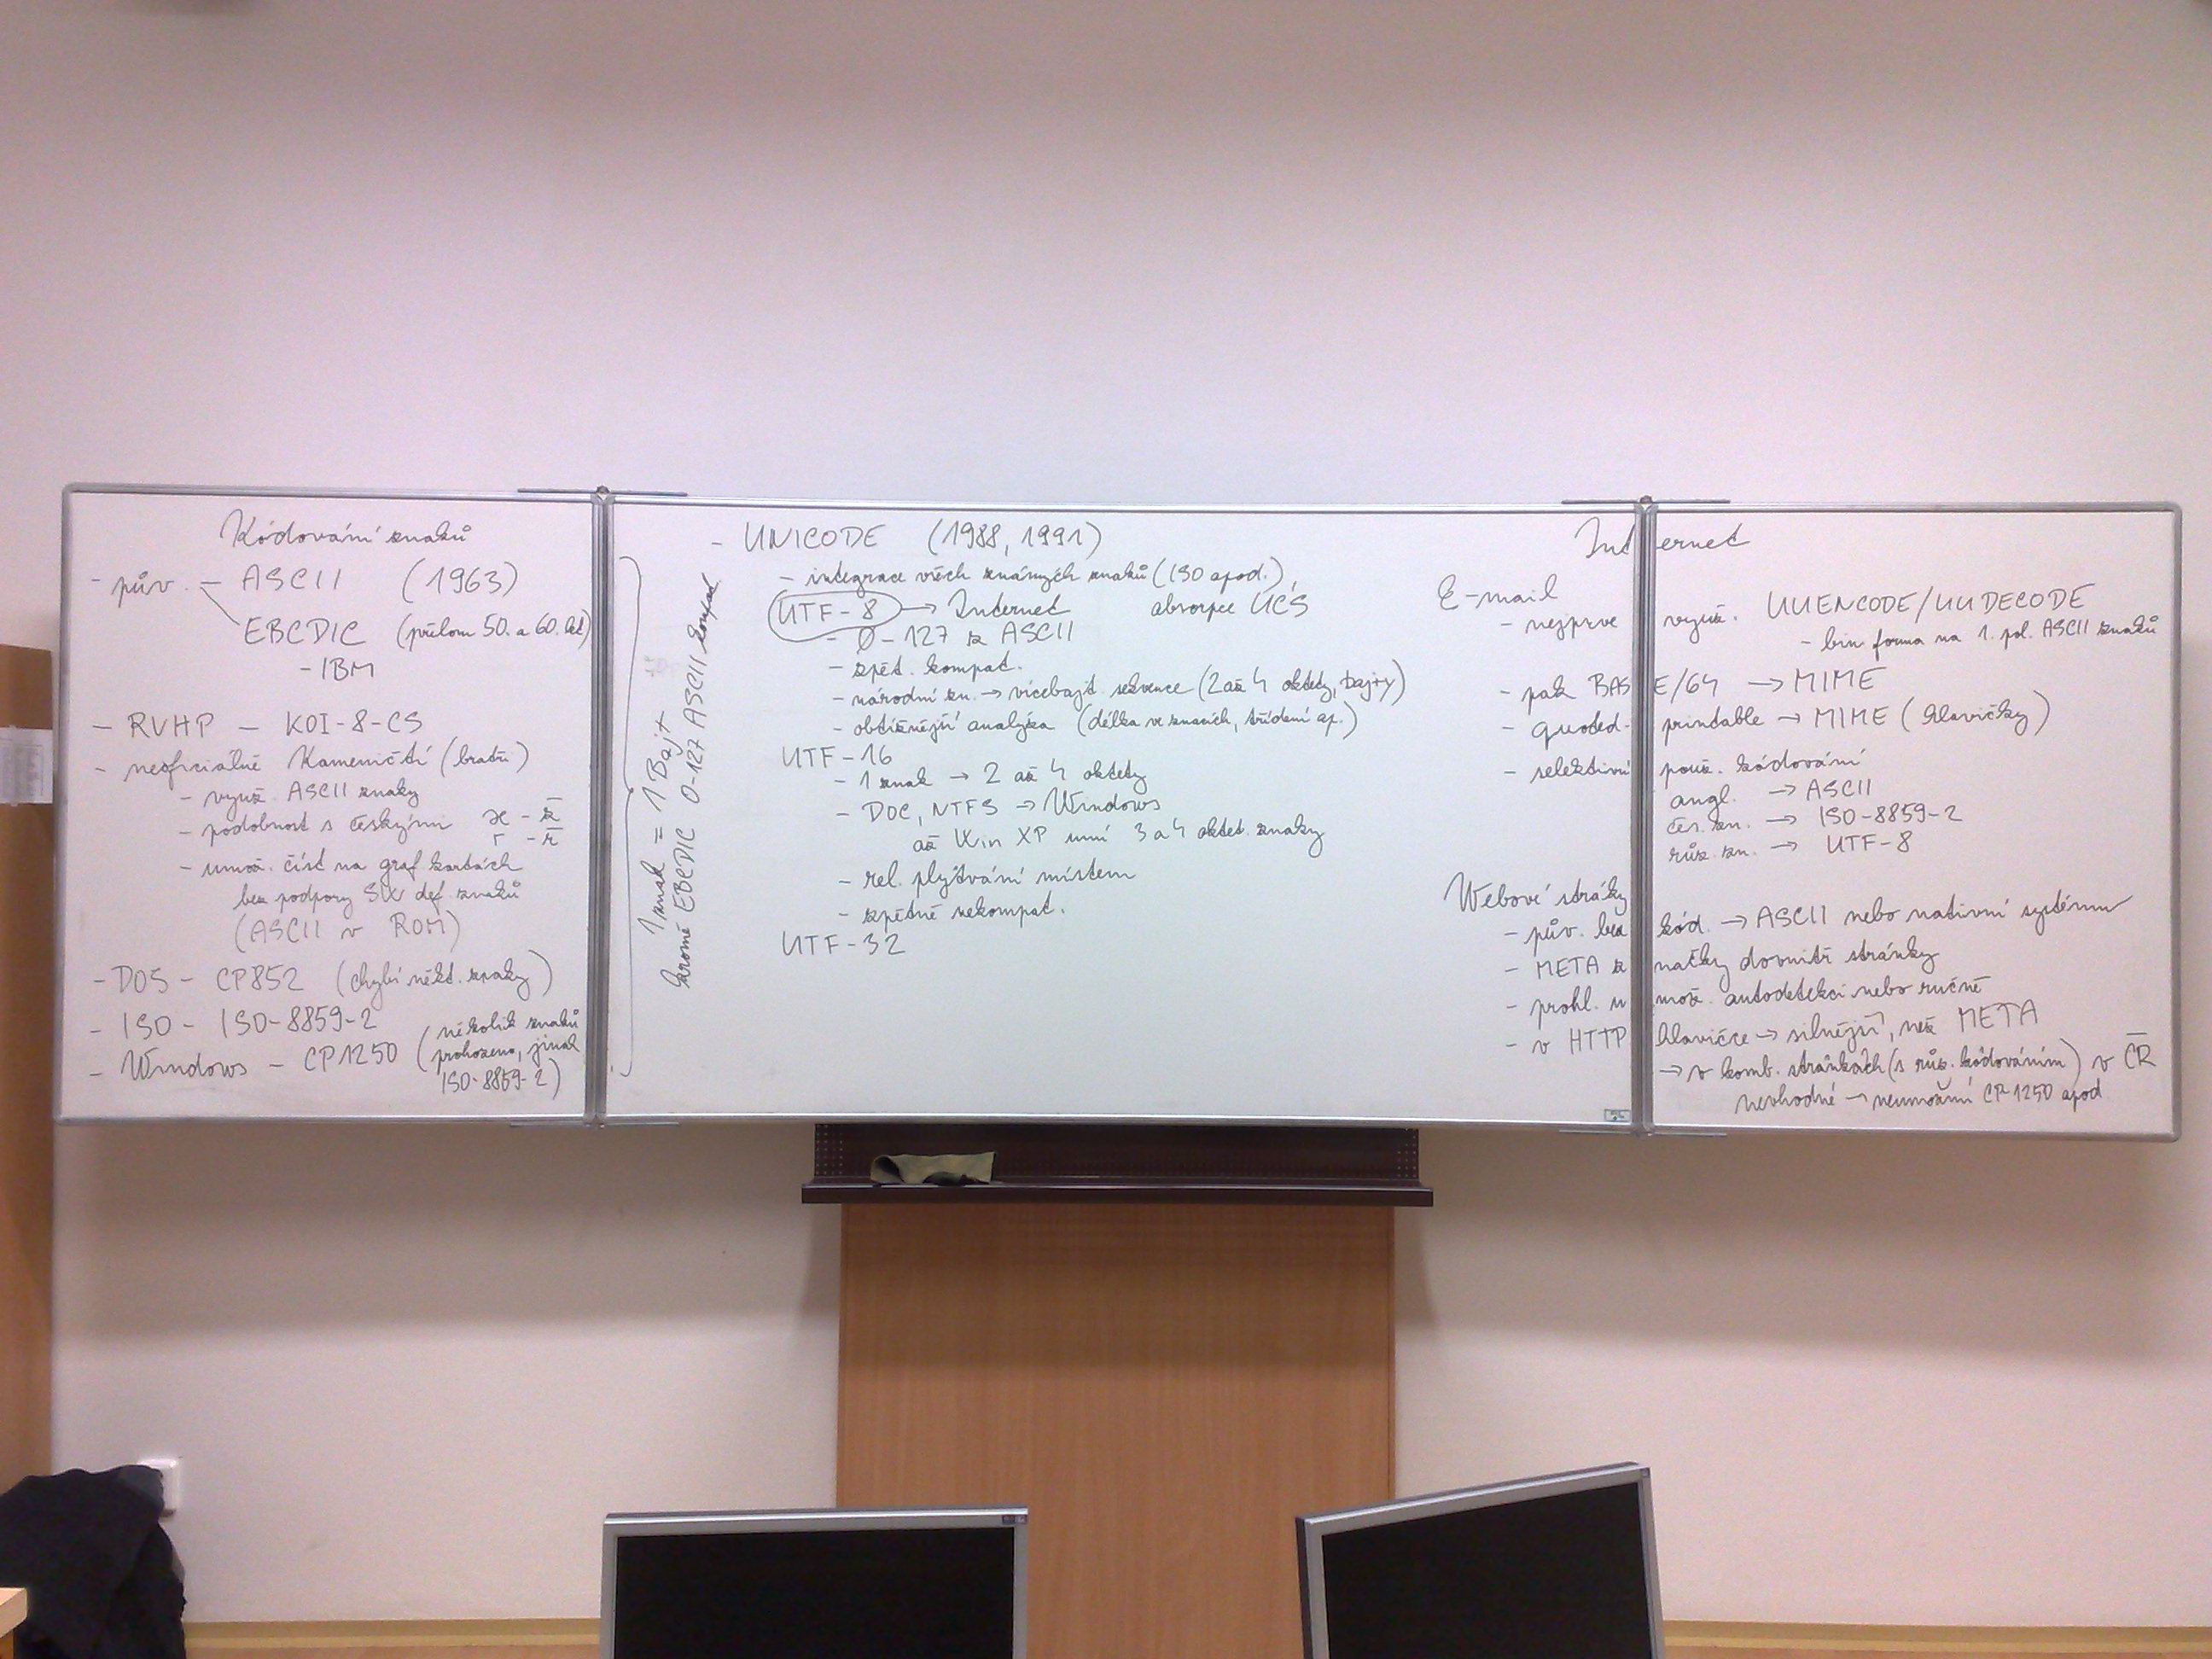 Kódování znaků
- pův. - ASCII (1963)
EBCDIC (přelom 50. a 60. let)
- IBM
- RVHP - KOI-8-CS
- neoficiálně Kameničtí (bratři)
- využ. ASCII znaky
- podobnost s českými
- umož. číst na graf. kartách
bez podpory SW def. znaků
(ASCII v ROM)
- DOS - CP852 (chybí někt. znaky)
- ISO - ISO-8859-2
- Windows - CP1250 (několik znaků
prohozeno, jinak
ISO-8859-2)
1 znak = 1 Bajt
kromě EBCDIC 0-127 ASCII kompat
- UNICODE (1988, 1991)
- integrace všech známých znaků (ISO apod.),
absorpce UCS
UTF-8 → Internet
- 0-127 z ASCII
- zpět. kompat.
- národní zn. → vícebajt. sekvence (2 až 4 oktety, bajty)
- obtížnější analýza (délka ve znacích, třídění ap.)
UTF-16
- 1 znak → 2 až 4 oktety
- DOC, NTFS → Windows
až Win XP umí 3 a 4 oktet. znaky
- rel. plýtvání místem
- zpětně nekompat.
UTF-32
Internet
E-mail
- nejprve využ. UUENCODE/UUDECODE
- bin forma na 1. pol. ASCII znaků
- pak BASE/64 → MIME
- quoted-printable → MIME (hlavičky)
- selektivní použ. kódování
angl. → ASCII
čes. zn. → ISO-8859-2
růz. zn. → UTF-8
Webové stránky
- pův. bez kód. → ASCII nebo nativní systému
- META značky dovnitř stránky
- prohl. umož. autodetekci nebo ručně
- v HTTP hlavičce → silnější, než META
→ v komb. stránkách (s růz. kódováním) v ČR
nevhodné → neumožní CP1250 apod